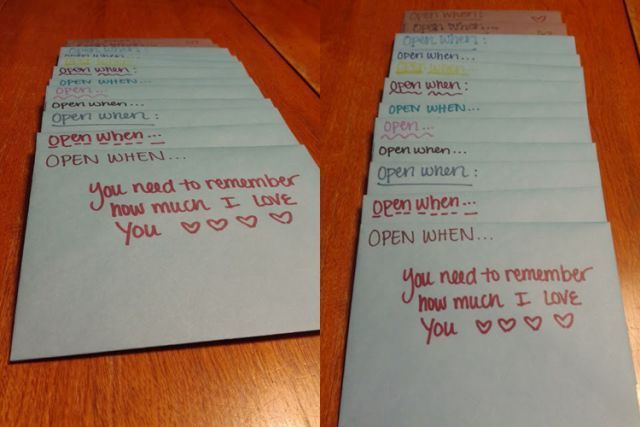 Open when:
OPEN WHEN...
Open...
Open when...
Open when:
Open when...
OPEN WHEN...
You need to remember
how much I LOVE
You ♡ ♡ ♡ ♡
Open when:
Open when:
Open when:
OPEN WHEN...
Open...
Open when...
Open when:
Open when...
OPEN WHEN...
You need to remember
how much I LOVE
You ♡ ♡ ♡ ♡